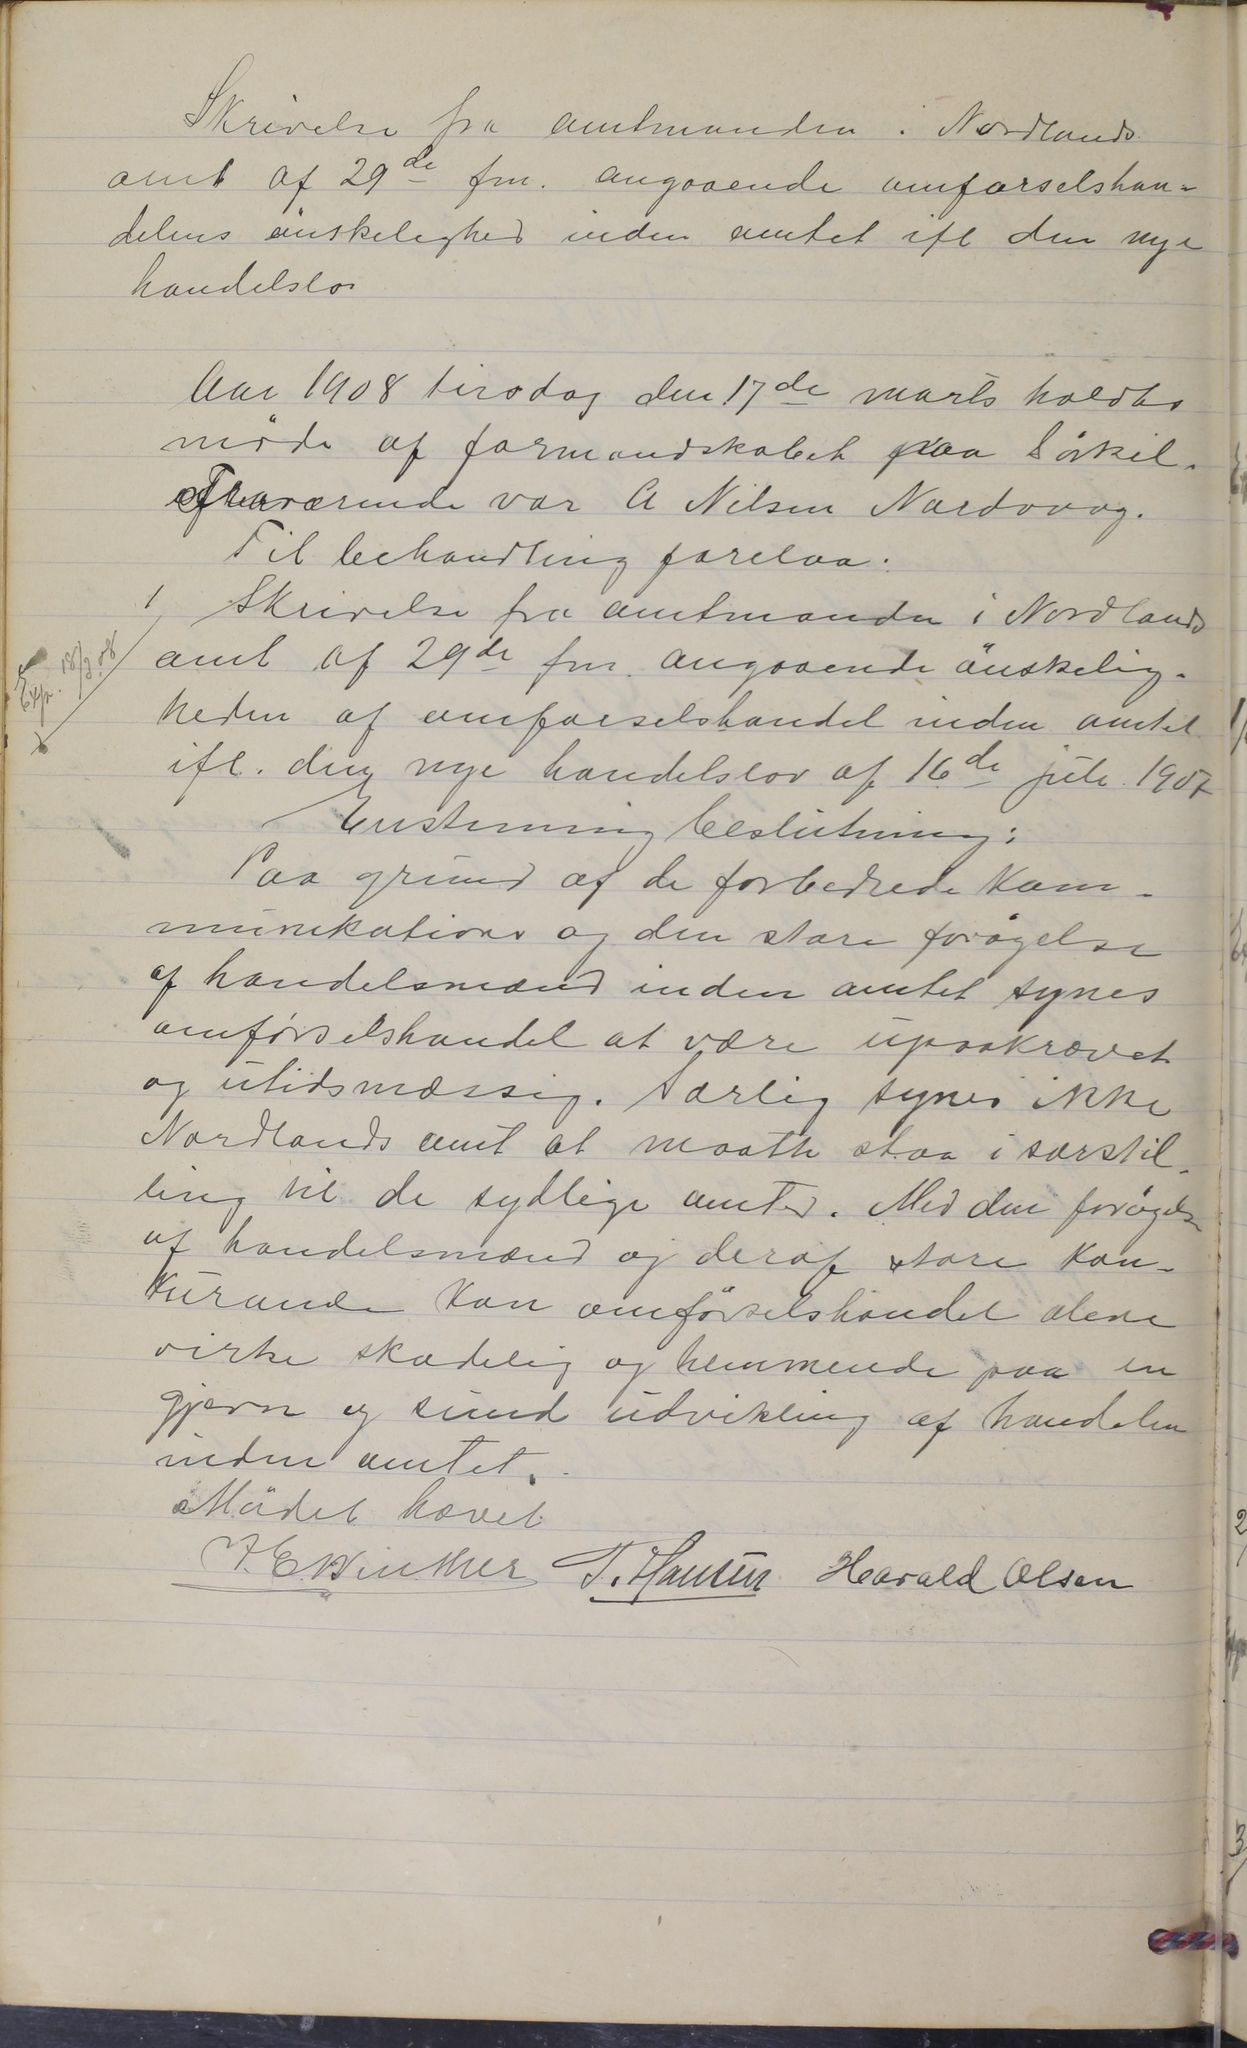 Skrivelse fra amtmanden i Nordlands
amt af 29de fm. angaaende omførselshan-
delens ønskelighed inden amtet ifl den nye
handelslov
Aar 1908 tirsdag den 17de marts holdtes
møde af formandskabet paa Sørkil.
Fraværende var A Nilsen Nordvaag.
Til behandling forelaa:
1, Skrivelse fra amtmanden i Nordlands
Exp. 18/3 08
amt af 29de fm. angaaende ønskelig-
heden af omførselshandel inden amtet
ifl. den nye handelslov af 16de juli 1907
Enstemmig beslutning:
Paa grund af de forbedrede kom-
munikationer og den store forøgelse
af handelsmænd inden amtet synes
omførselshandel at være upaakrævet
og utidsmæssig. Særlig synes ikke
Nordlands amt at maatte staa i særstil-
ling til de sydlige amter. Med den forøgelse
af handelsmænd og deraf store kon-
kurance kan omførselshandel alene
virke skadelig og hemmende paa en
gjævn og sund udvikling af handelen
inden amtet.
Mødet hævet
E Winther T. Hansen Harald Olsen